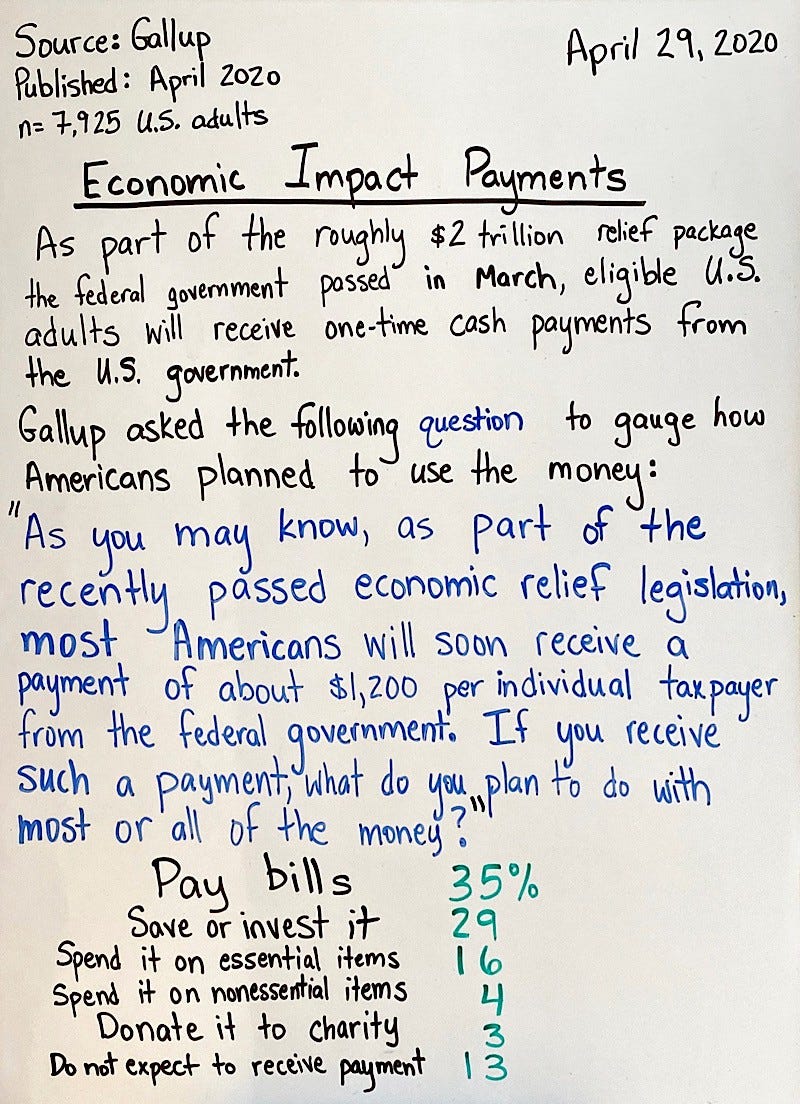 Source: Gallup
April 29, 2020
Published: April 2020
n= 7,925 U.S. adults
Economic Impact Payments
As part of the roughly $2 trillion relief package
the federal government passed in March, eligible U.S.
adults will receive one-time cash payments from
the U.S. government.
Gallup asked the following question to gauge how
Americans planned to use the money:
"As you may know, as part of the
recently passed economic relief legislation,
most Americans will soon receive a
payment of about $1,200 per individual taxpayer
from the federal government. If you receive
such a payment, what do you plan to do with
most or all of the money?"
Pay bills 35%
Save or invest it 29
Spend it on essential items 16
Spend it on nonessential items 4
Donate it to charity 3
Do not expect to receive payment 13